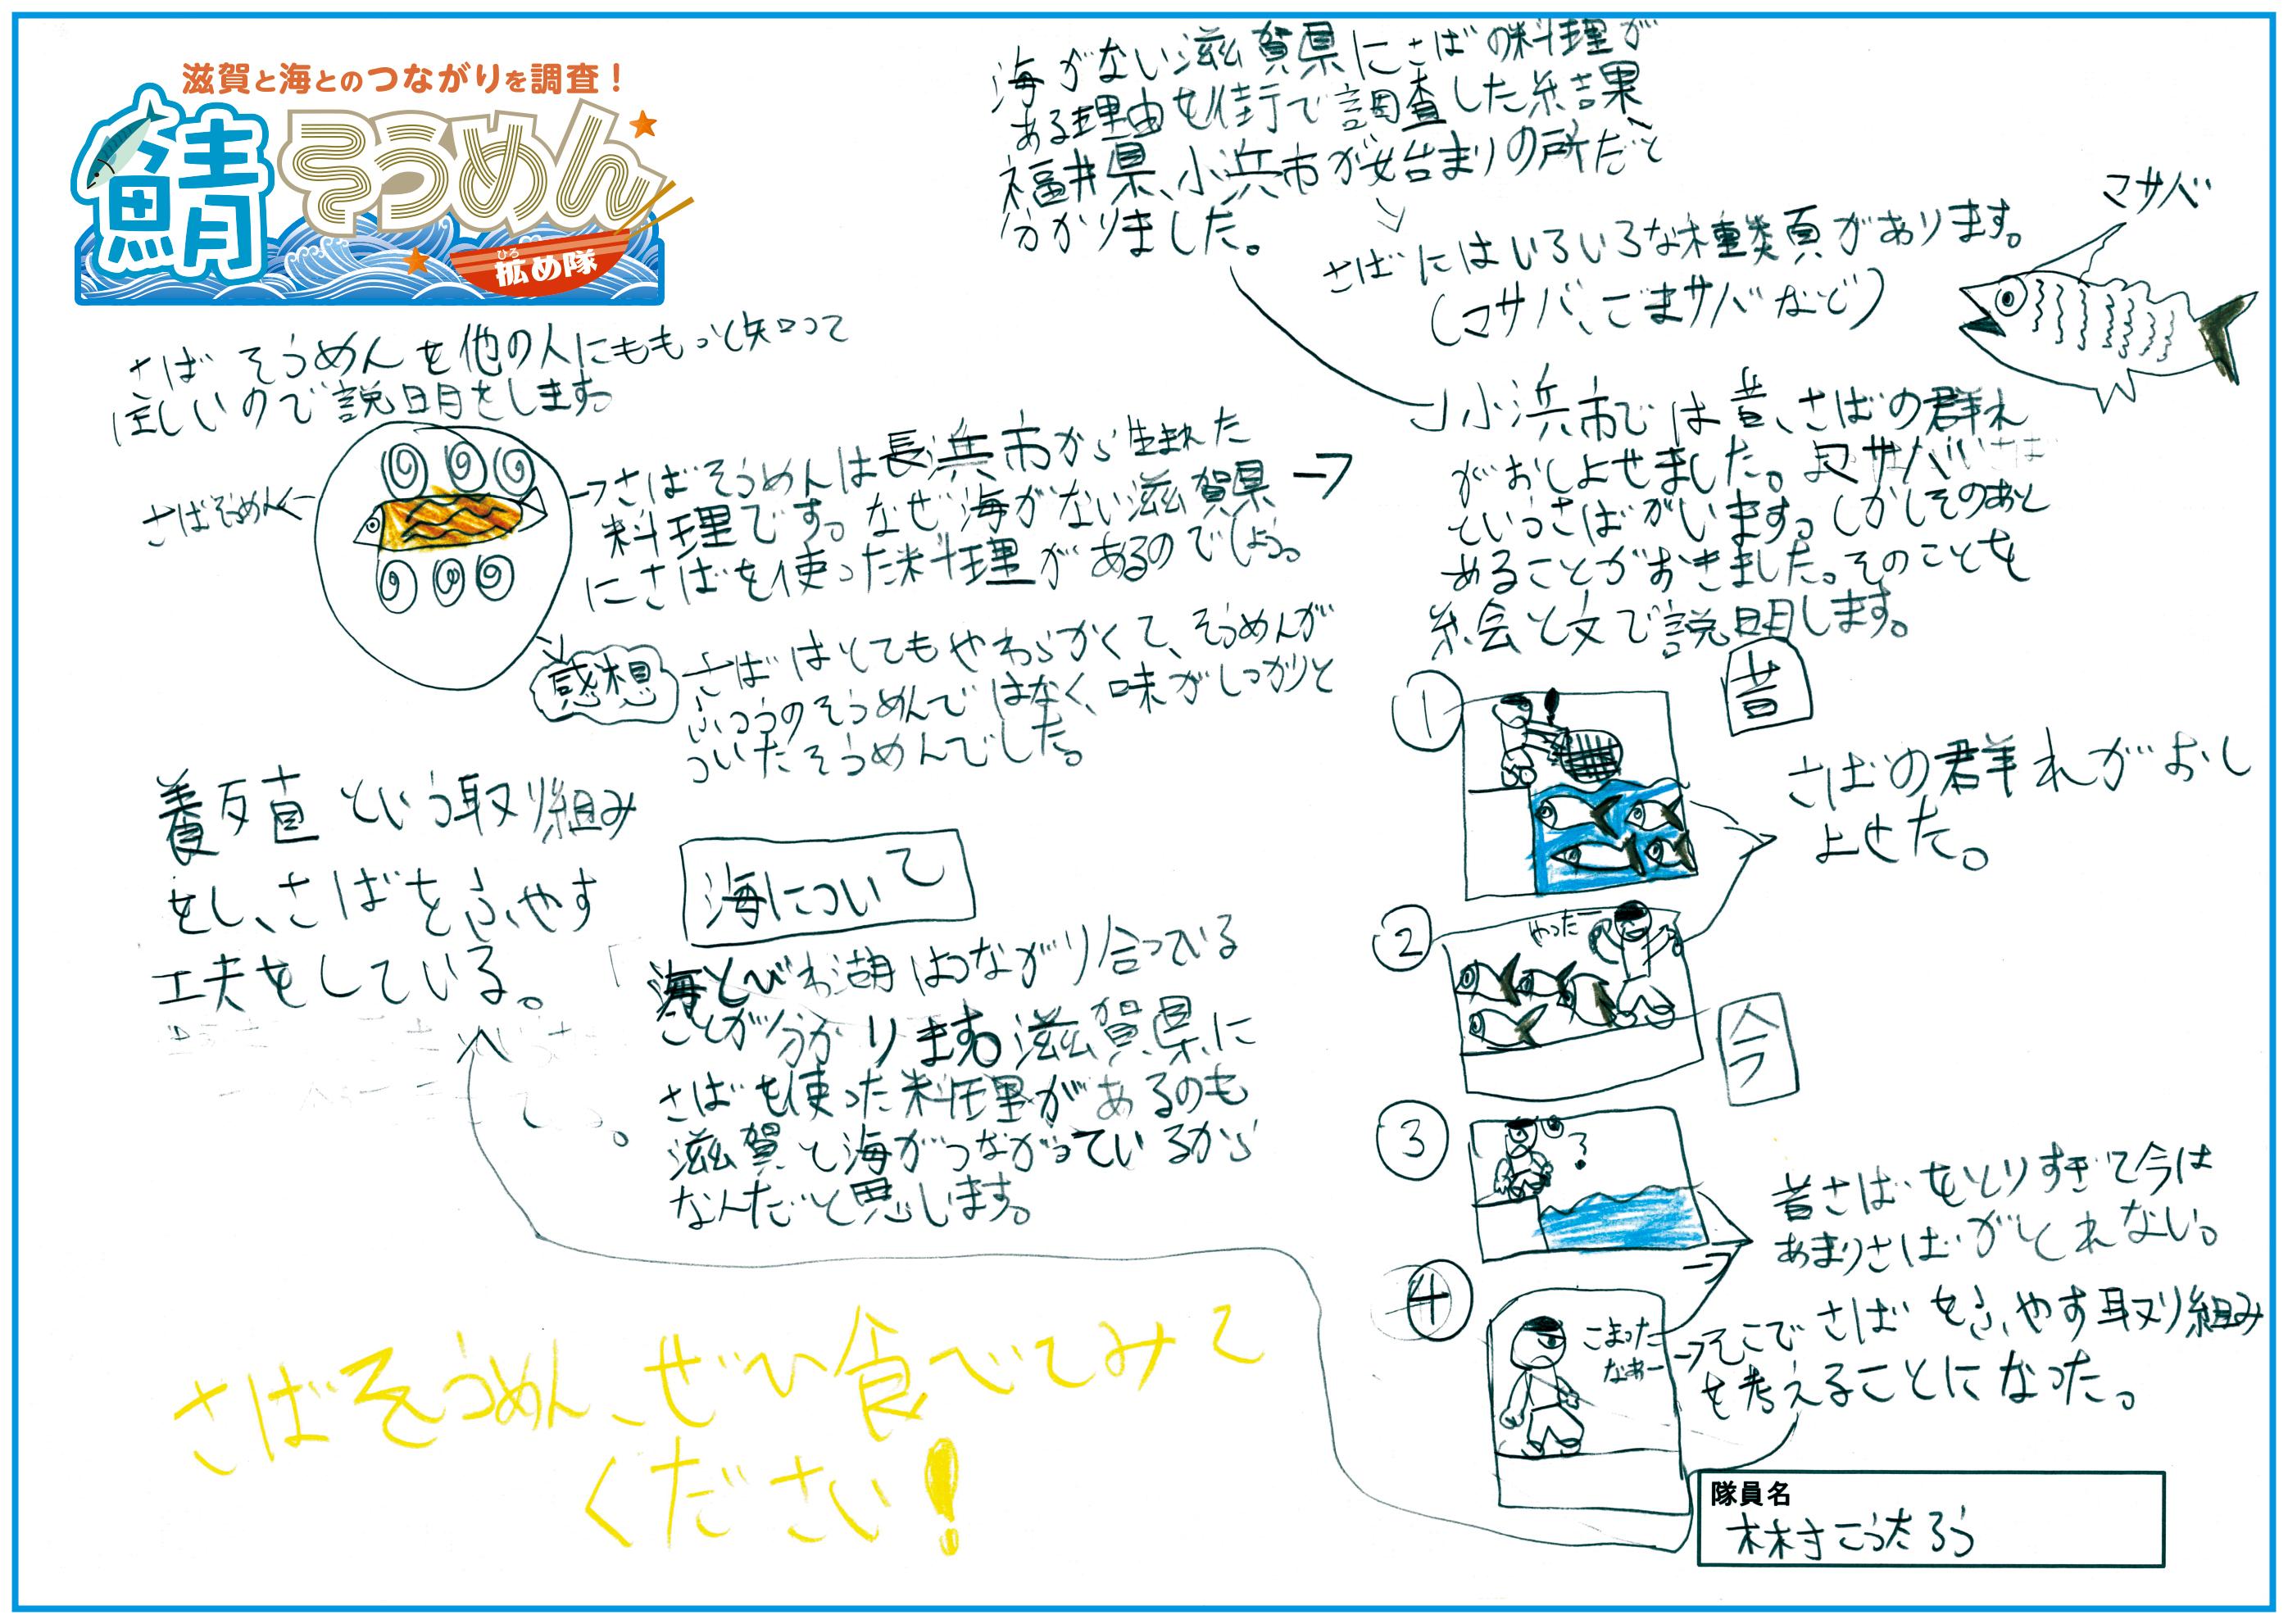 滋賀と海とのつながりを調査!
鯖そうめん
ひろ
拡め隊
さばそうめんを他の人にももっと知って
ほしいので説明をします。
さばそうめん
→さばそうめんは長浜市から生まれた
料理です。なぜ海がない滋賀県
にさばを使った料理があるのでしょう。
感想
さばはとてもやわらかくて、そうめんが
ふつうのそうめんではなく、味がしっかりと
ついたそうめんでした。
海がない滋賀県にさばの料理が
ある理由を街で調査した結果、
福井県、小浜市が始まりの所だと
分かりました。
さばにはいろいろな種類があります。
(マサバ、ごまサバなど)
マサバ
小浜市では昔、さばの群れ
がおしよせました。マサバ
というさばがいます。しかしそのあと
めることがおきました。そのことを
絵と文で説明します。
昔
①
さばの群れがおし
よせた。
②
やったー
今
③
?
昔さばをとりすぎて今は
あまりさばがとれない。
④
こまった
なあー
→そこでさばをふやす取り組み
を考えることになった。
養殖という取り組み
をし、さばをふやす
工夫をしている。
海について
海とびわ湖はつながり合っている
ことが分かります。滋賀県に
さばを使った料理があるのも
滋賀と海がつながっているから
なんだと思います。
さばそうめん、ぜひ食べてみて
ください!
隊員名
林村こうたろう